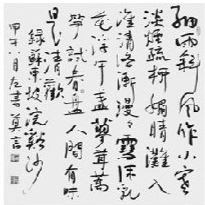 細雨斜風作小寒
淡煙疏柳媚晴灘入
淮清洛漸漫漫雪沫乳
花浮午盞蓼茸蒿
筍試春盤人間有味
是清歡
錄蘇東坡浣溪沙
甲午月左書莫言